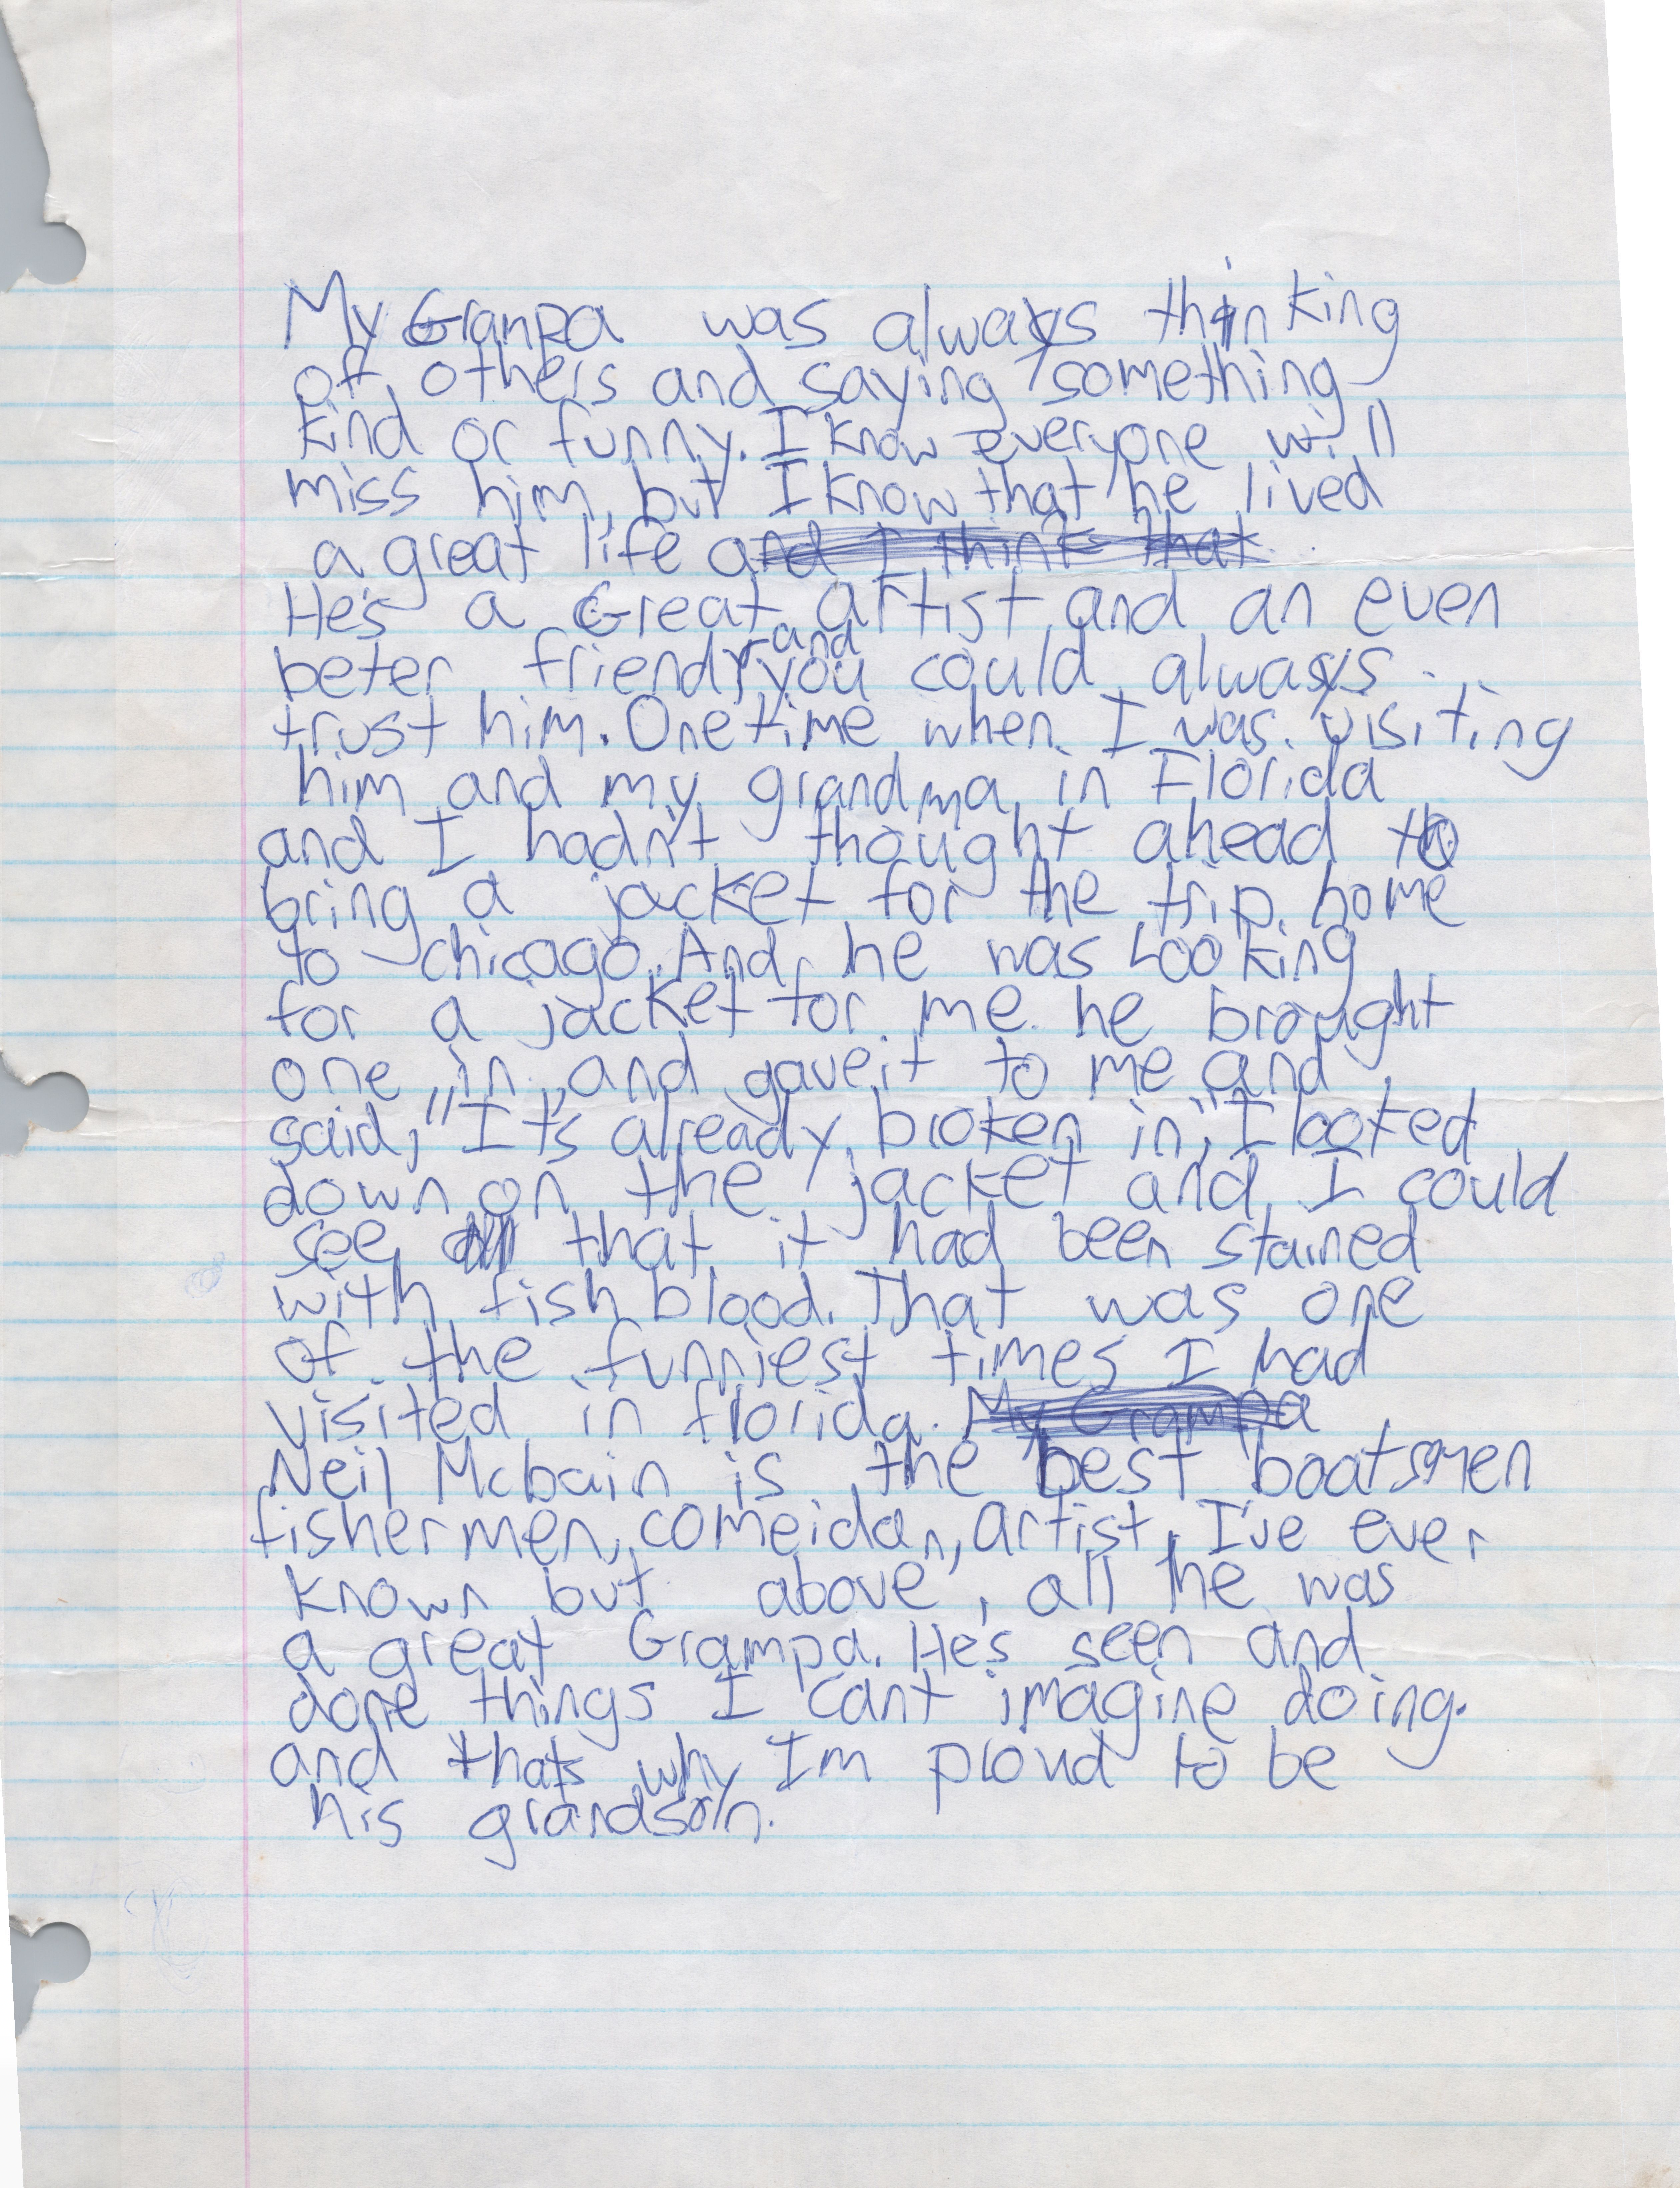 My Granpa was always thinking
of others and saying something
kind or funny. I know everyone will
miss him, but I know that he lived
a great life and I think that
He's a Great artist and an even
beter friend, and you could always
trust him. One time when I was visiting
him and my grandma in Florida
and I hadn't thought ahead to
bring a jacket for the trip home
to chicago. And he was Looking
for a jacket for me he brought
one in and gave it to me and
said, "It's already broken in", I looked
down on the jacket and I could
see that it had been stained
with fish blood. That was one
of the funniest times I had
visited in florida. My Grampa
Neil Mcbain is the best boatsmen
fishermen, comeidan, artist, I've ever
known but above, all he was
a great Grampa. He's seen and
done things I can't imagine doing.
and thats why Im proud to be
his grandson.